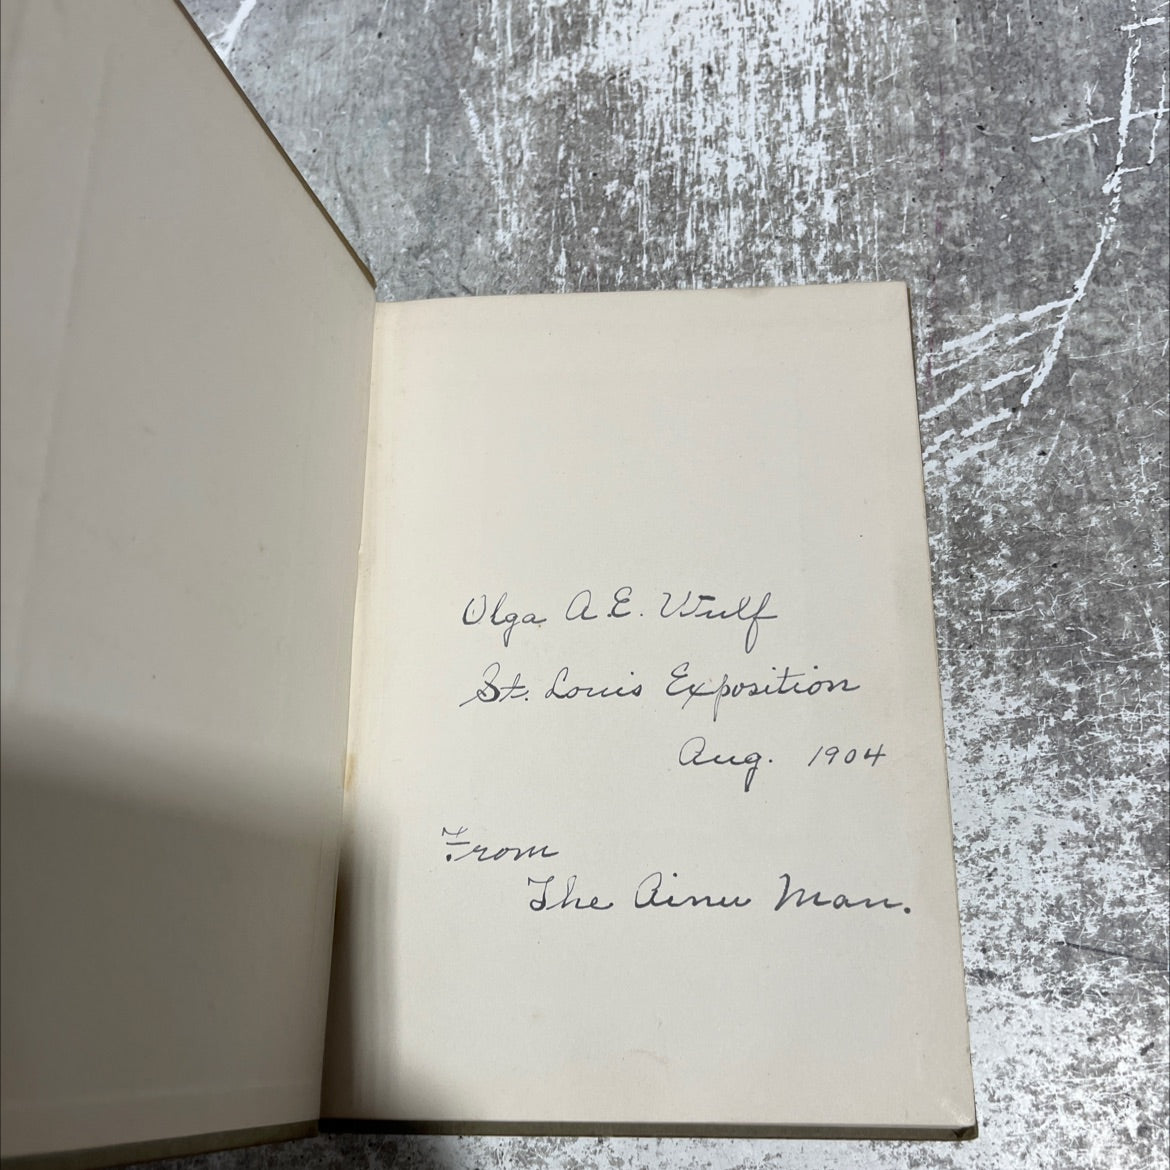 Olga A. E. Wulf
St. Louis Exposition
Aug. 1904
From
The Ainu Man.